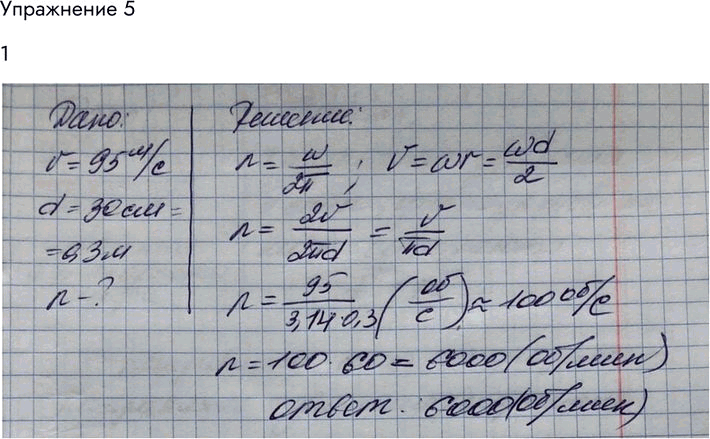 Упражнение 5
1
Дано:
v = 95 м/с
d = 30 см =
= 0,3 м
n - ?
Решение:
n = ω/2π ; v = ωr = ωd/2
n = 2v/2πd = v/πd
n = 95/3,14·0,3 (об/с) ≈ 100 об/с
n = 100 · 60 = 6000 (об/мин)
ответ: 6000 (об/мин)